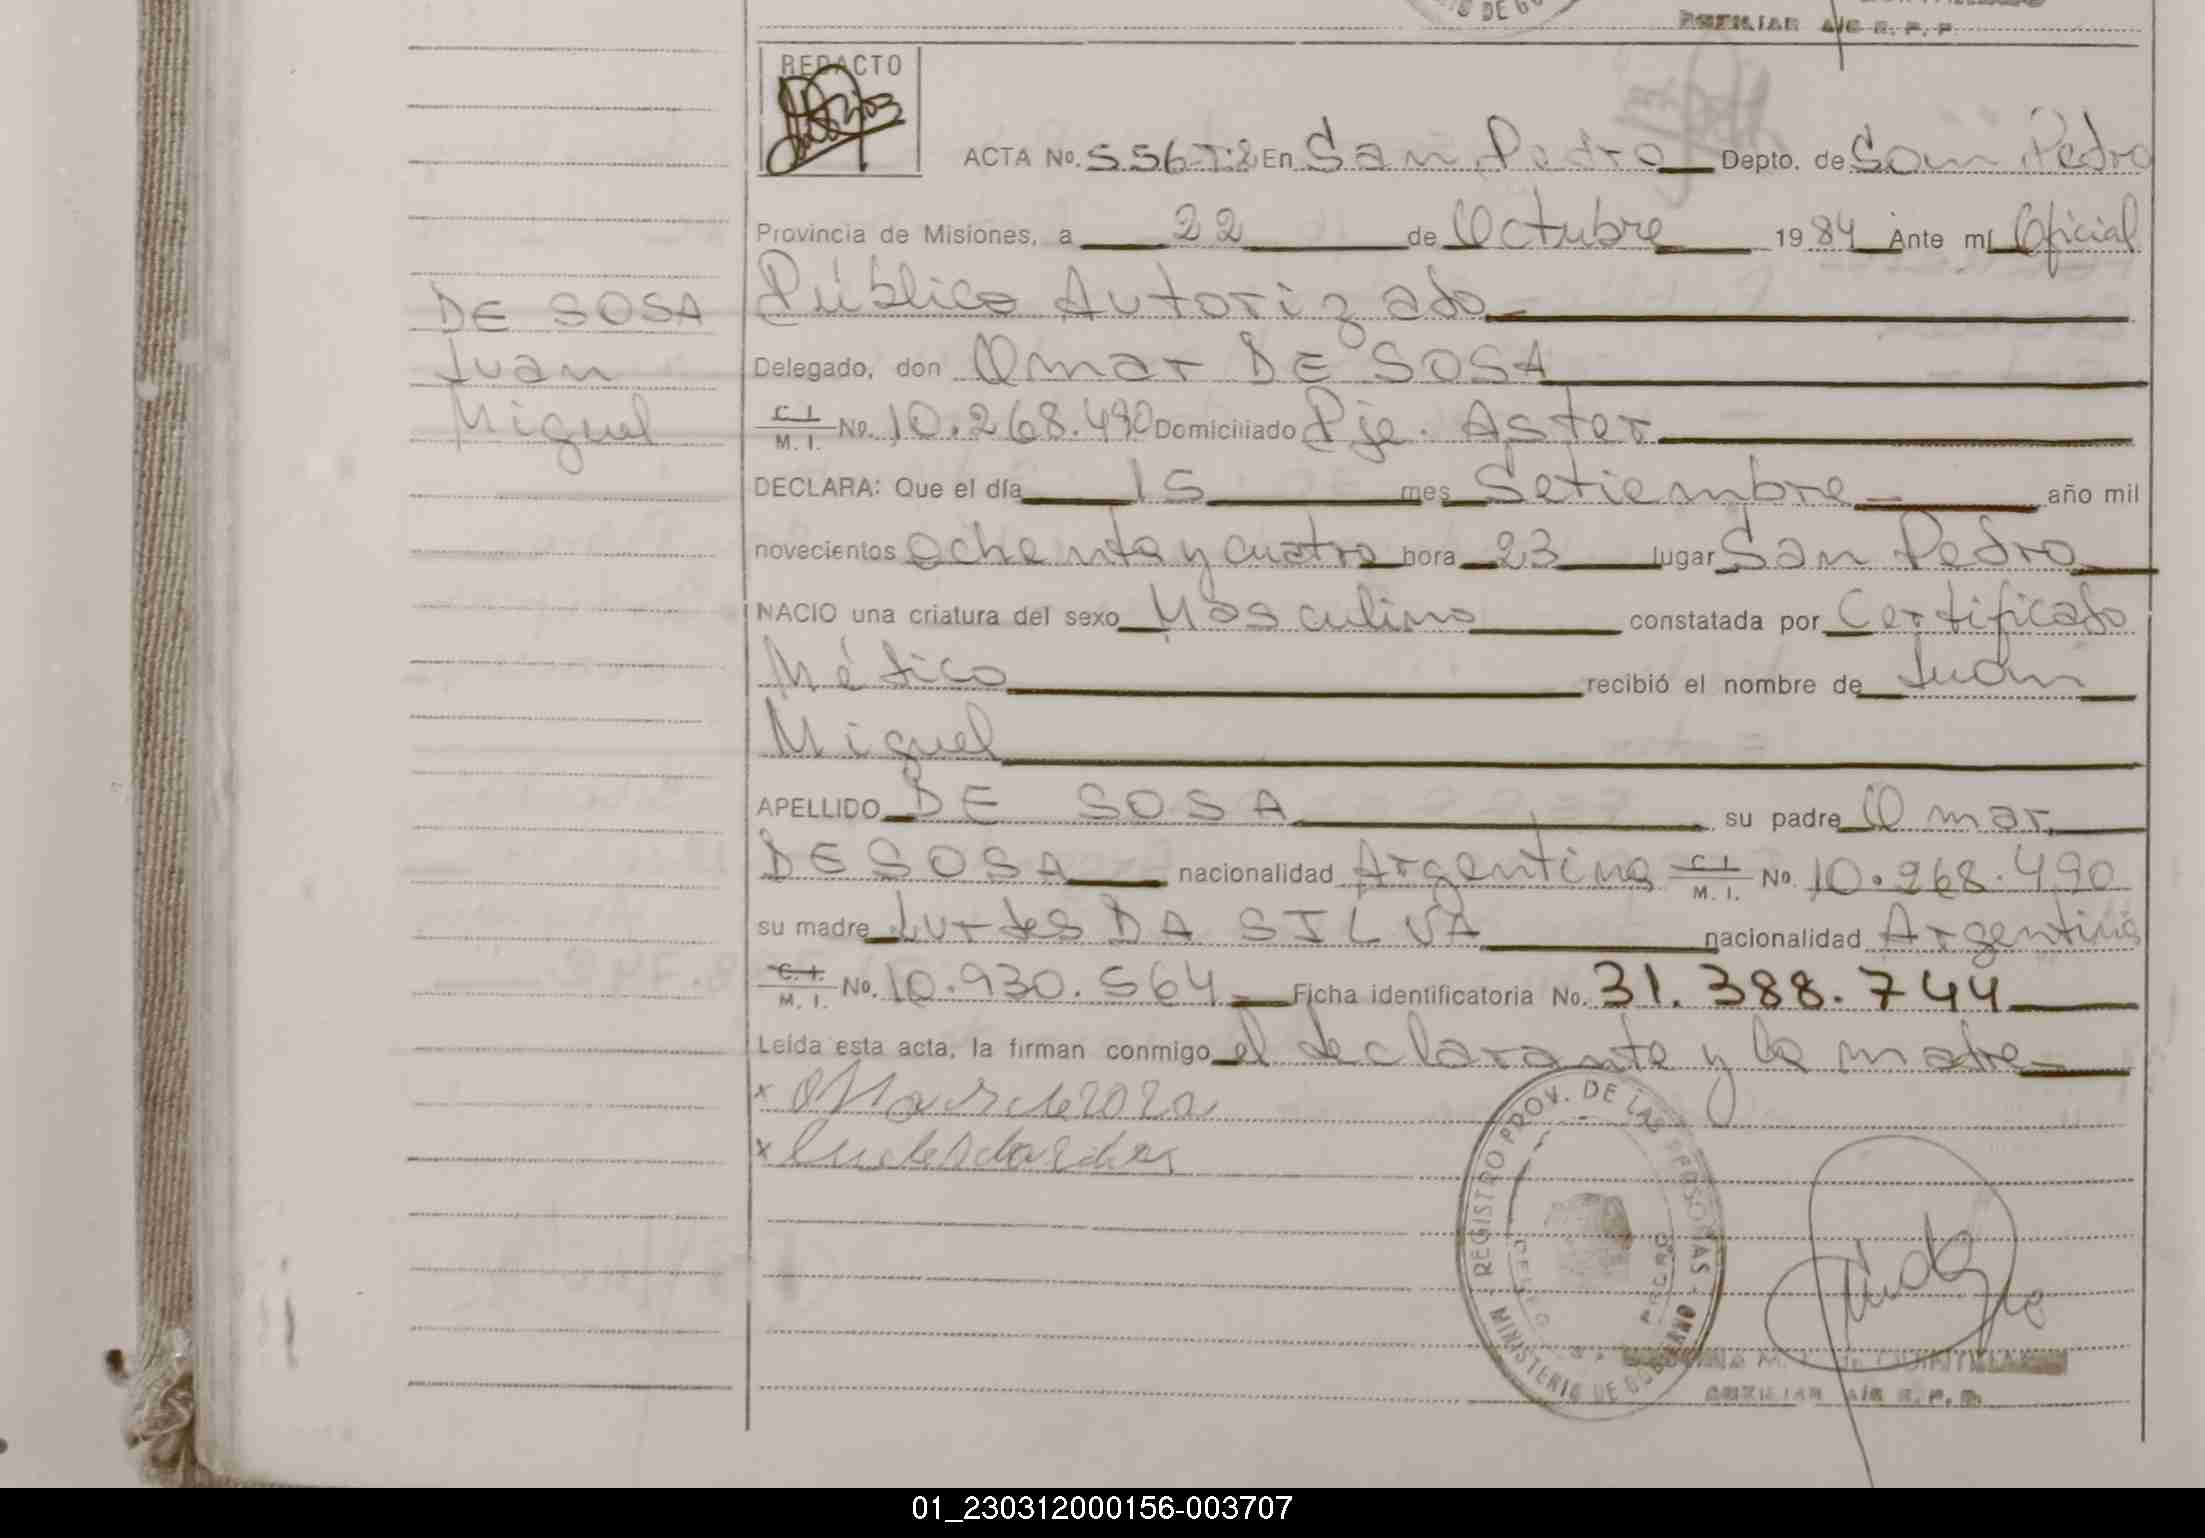 AUXILIAR A/C R. P. P.
REDACTO
ACTA No. 556-T:2 En San Pedro Depto. de San Pedro
Provincia de Misiones, a 22 de Octubre 1984 Ante mí Oficial
DE SOSA
Público Autorizado
Juan
Delegado, don Omar DE SOSA
Miguel
C. I. / M. I. No. 10.268.490 Domiciliado Pje. Aster
DECLARA: Que el día 15 mes Setiembre año mil
novecientos ochenta y cuatro hora 23 lugar San Pedro
NACIO una criatura del sexo Masculino constatada por Certificado
Médico recibió el nombre de Juan
Miguel
APELLIDO DE SOSA su padre Omar
DE SOSA nacionalidad Argentina C. I. / M. I. No. 10.268.490
su madre Lurdes DA SILVA nacionalidad Argentina
C. I. / M. I. No. 10.930.564 Ficha identificatoria No. 31.388.744
Leída esta acta, la firman conmigo el declarante y la madre
x
x
REGISTRO PROV. DE LAS PERSONAS
MINISTERIO DE GOBIERNO
AUXILIAR A/C R. P. P.
01_230312000156-003707